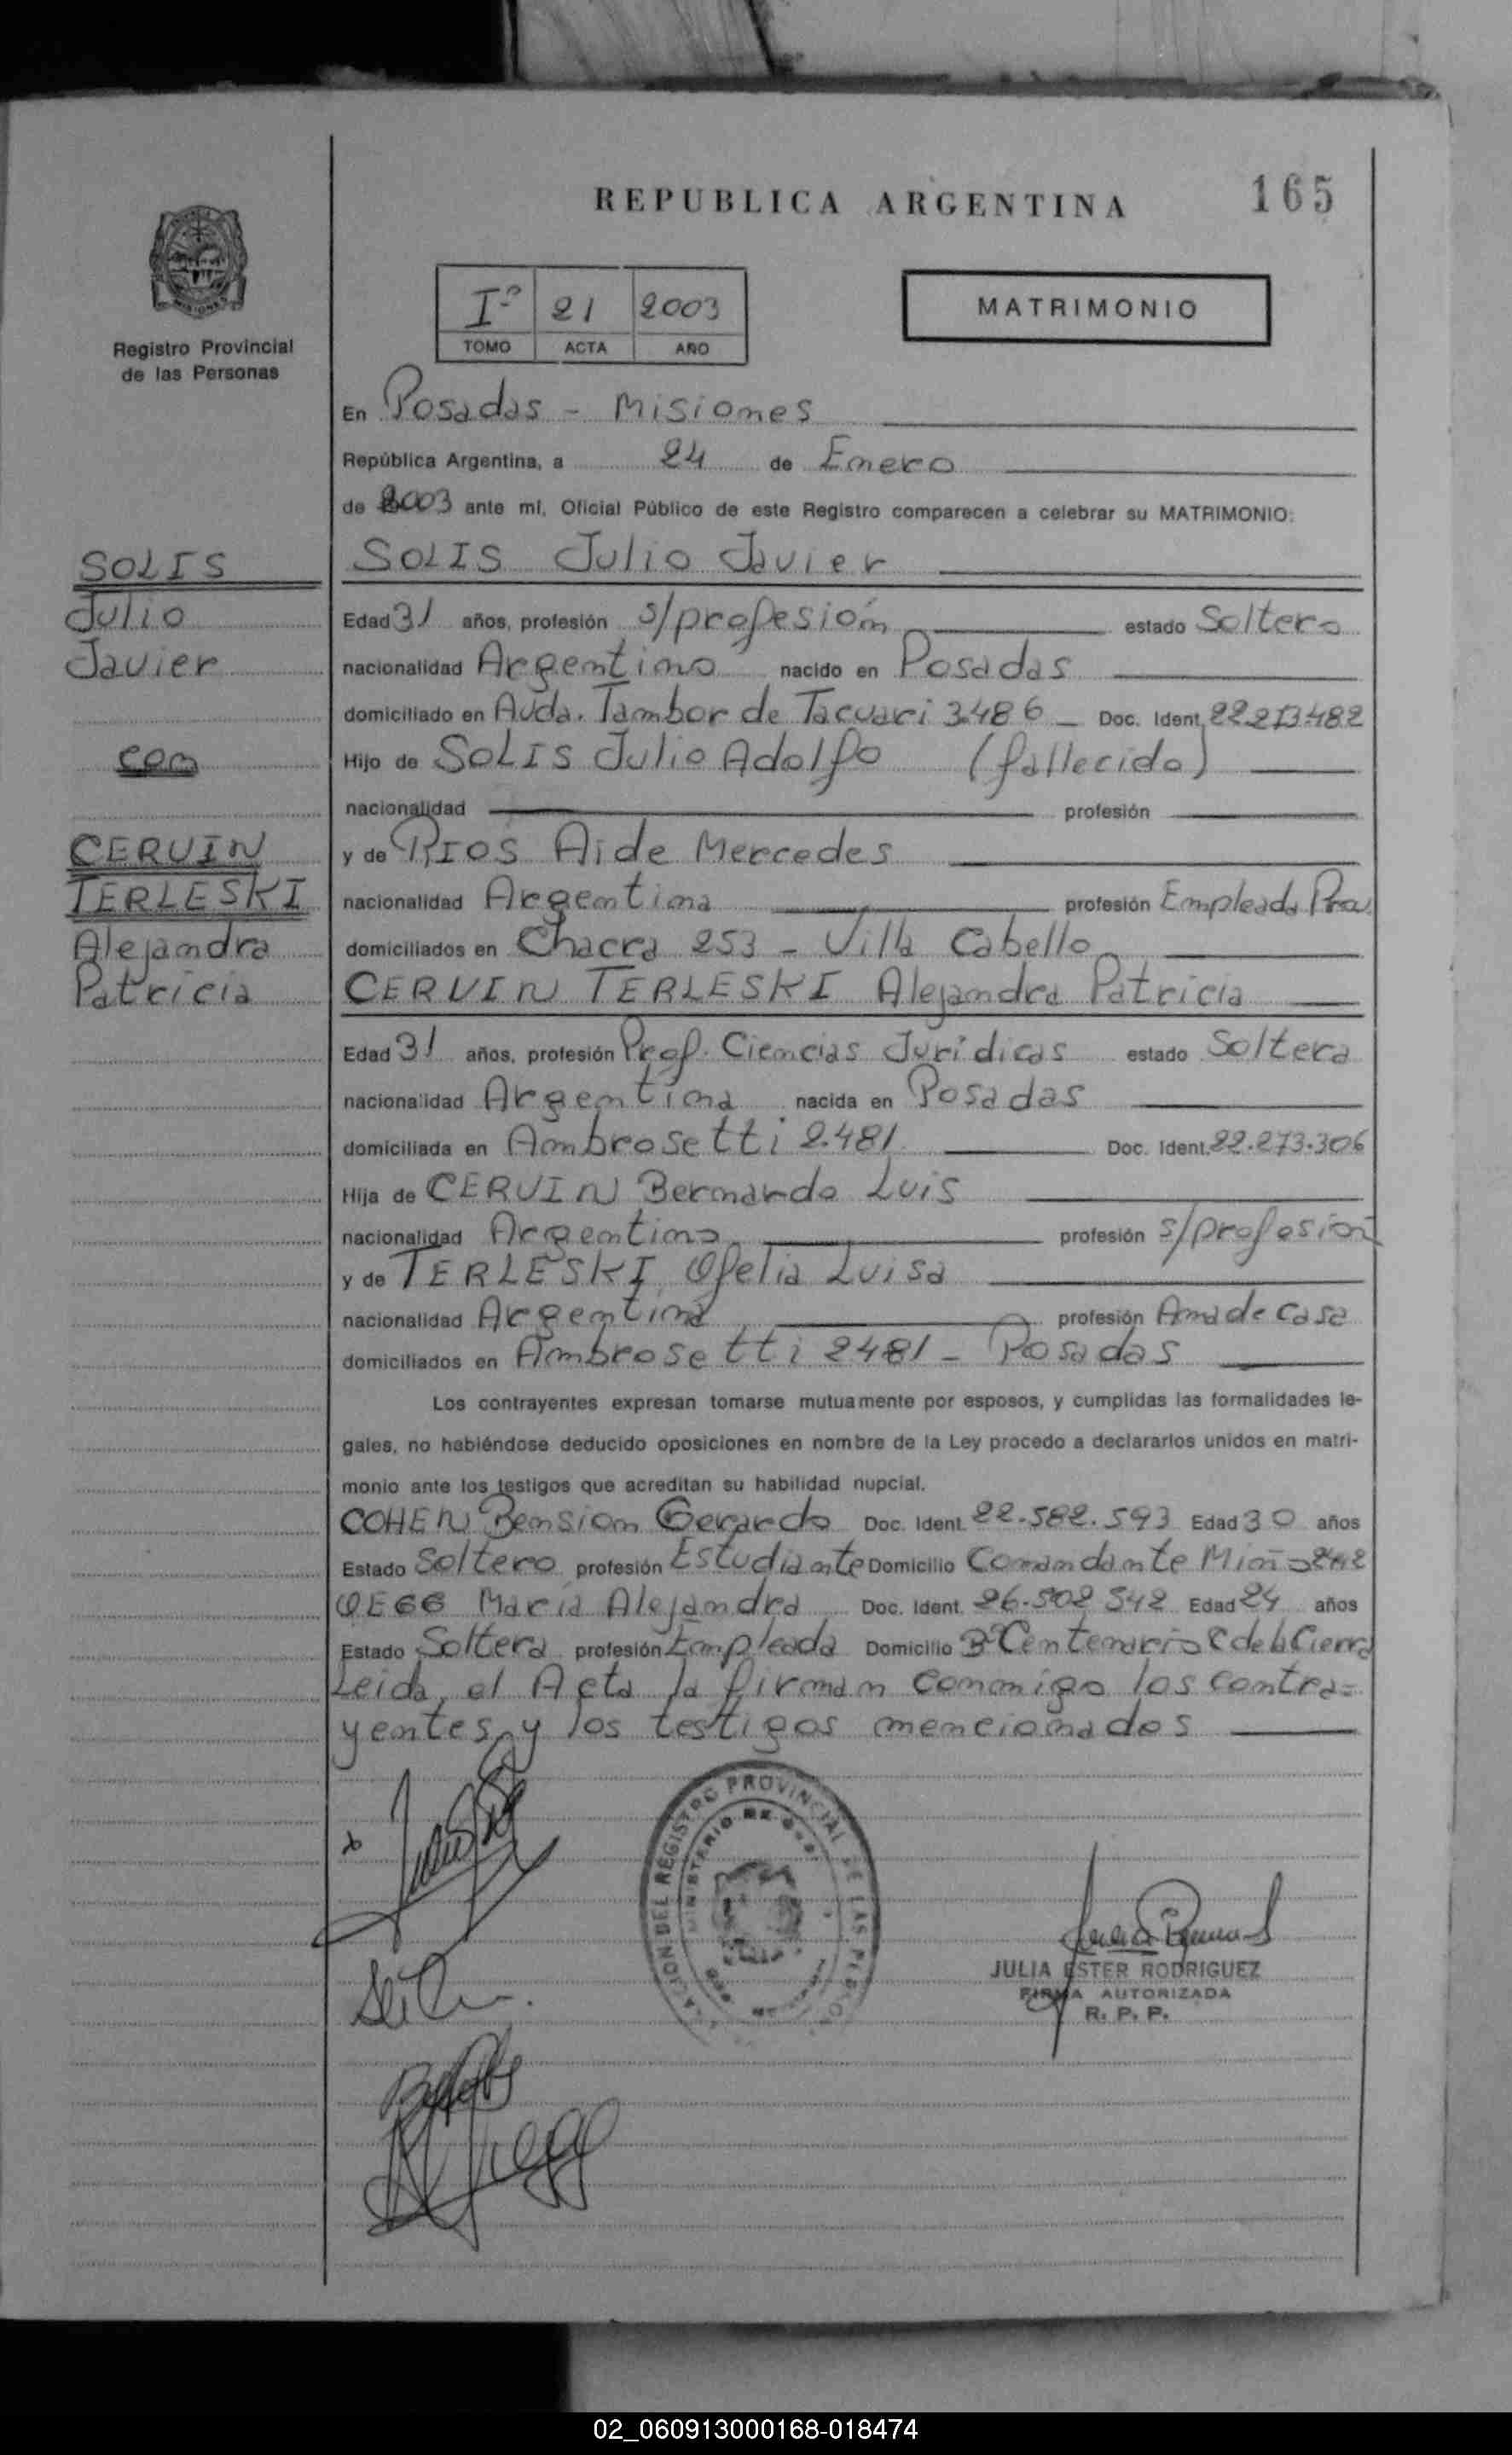 REPUBLICA ARGENTINA
165
Registro Provincial
de las Personas
Iº 21 2003
TOMO ACTA AÑO
MATRIMONIO
En Posadas - Misiones
República Argentina, a 24 de Enero
de 2003 ante mí, Oficial Público de este Registro comparecen a celebrar su MATRIMONIO:
SOLIS
Julio
Javier
con
CERVIN
TERLESKI
Alejandra
Patricia
SOLIS Julio Javier
Edad 31 años, profesión s/profesión estado Soltero
nacionalidad Argentino nacido en Posadas
domiciliado en Avda. Tambor de Tacuari 3486 - Doc. Ident. 22.273.482
Hijo de SOLIS Julio Adolfo (fallecido)
nacionalidad profesión
y de RIOS Aide Mercedes
nacionalidad Argentina profesión Empleada
domiciliados en Chacra 253 - Villa Cabello
CERVIN TERLESKI Alejandra Patricia
Edad 31 años, profesión Prof. Ciencias Jurídicas estado Soltera
nacionalidad Argentina nacida en Posadas
domiciliada en Ambrosetti 2.481 Doc. Ident. 22.273.306
Hija de CERVIN Bernardo Luis
nacionalidad Argentino profesión s/profesión
y de TERLESKI Ofelia Luisa
nacionalidad Argentina profesión Ama de casa
domiciliados en Ambrosetti 2481 - Posadas
Los contrayentes expresan tomarse mutuamente por esposos, y cumplidas las formalidades le-
gales, no habiéndose deducido oposiciones en nombre de la Ley procedo a declararlos unidos en matri-
monio ante los testigos que acreditan su habilidad nupcial.
COHEN Bension Gerardo Doc. Ident. 22.582.593 Edad 30 años
Estado Soltero profesión Estudiante Domicilio Comandante Miño 242
OEGG María Alejandra Doc. Ident. 26.502.542 Edad 24 años
Estado Soltera profesión Empleada Domicilio 3º Centenario C de la Cierra
Leida, el Acta la firman conmigo los contra=
yentes y los testigos mencionados
REGISTRO PROVINCIAL DE LAS
JULIA ESTER RODRIGUEZ
FIRMA AUTORIZADA
R. P. P.
02_060913000168-018474